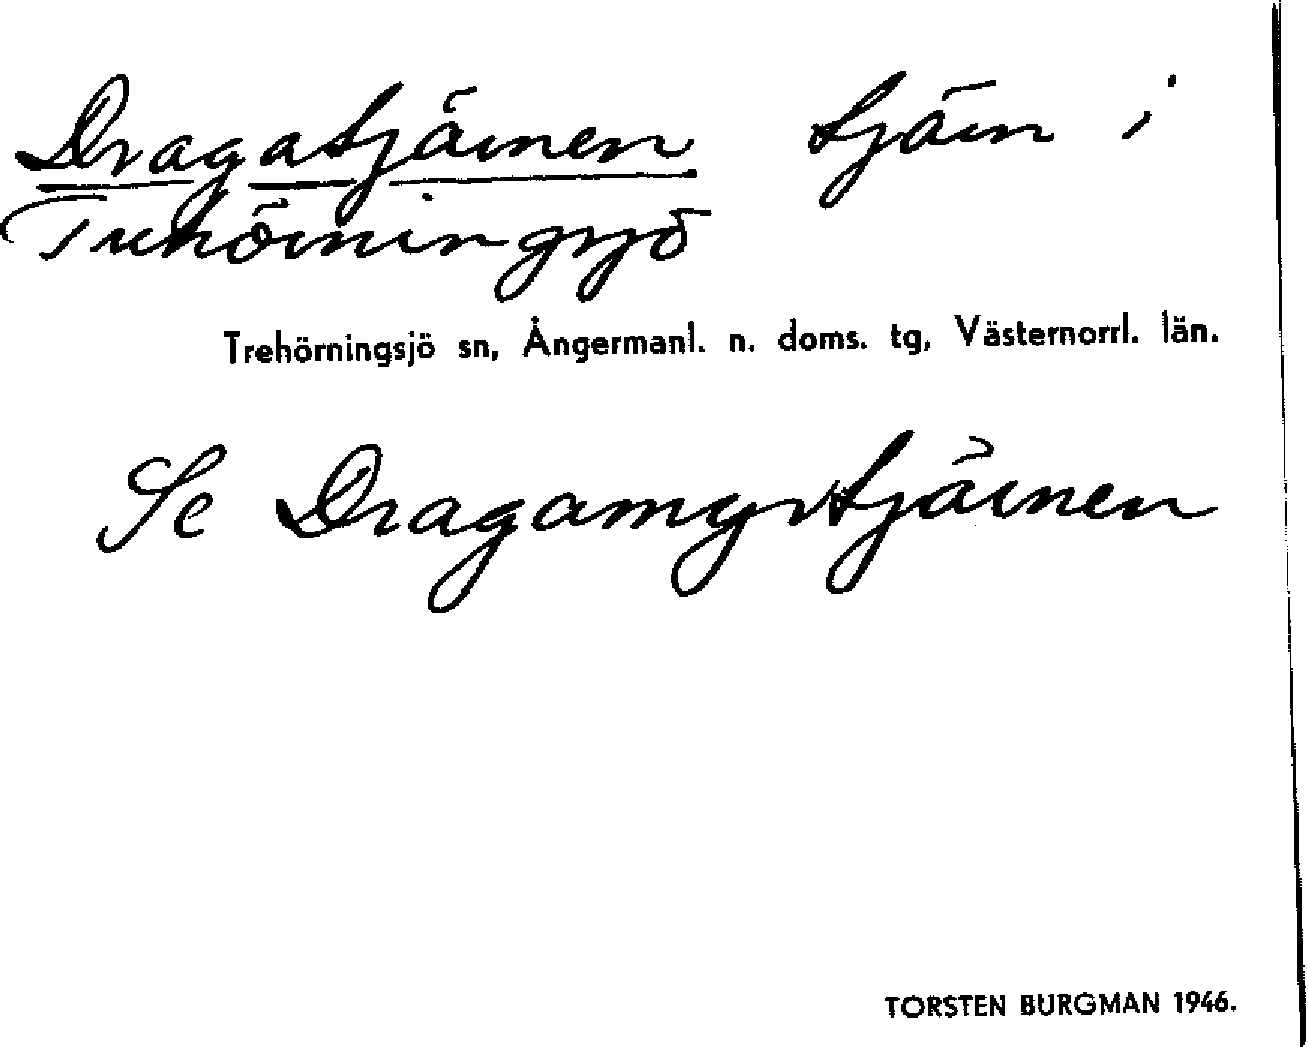 Dragatjärnen tjärn i
Trehörningsjö
Trehörningsjö sn, Ångermanl. n. doms. tg, Västernorrl. län.
Se Dragamyrtjärnen
TORSTEN BURGMAN 1946.